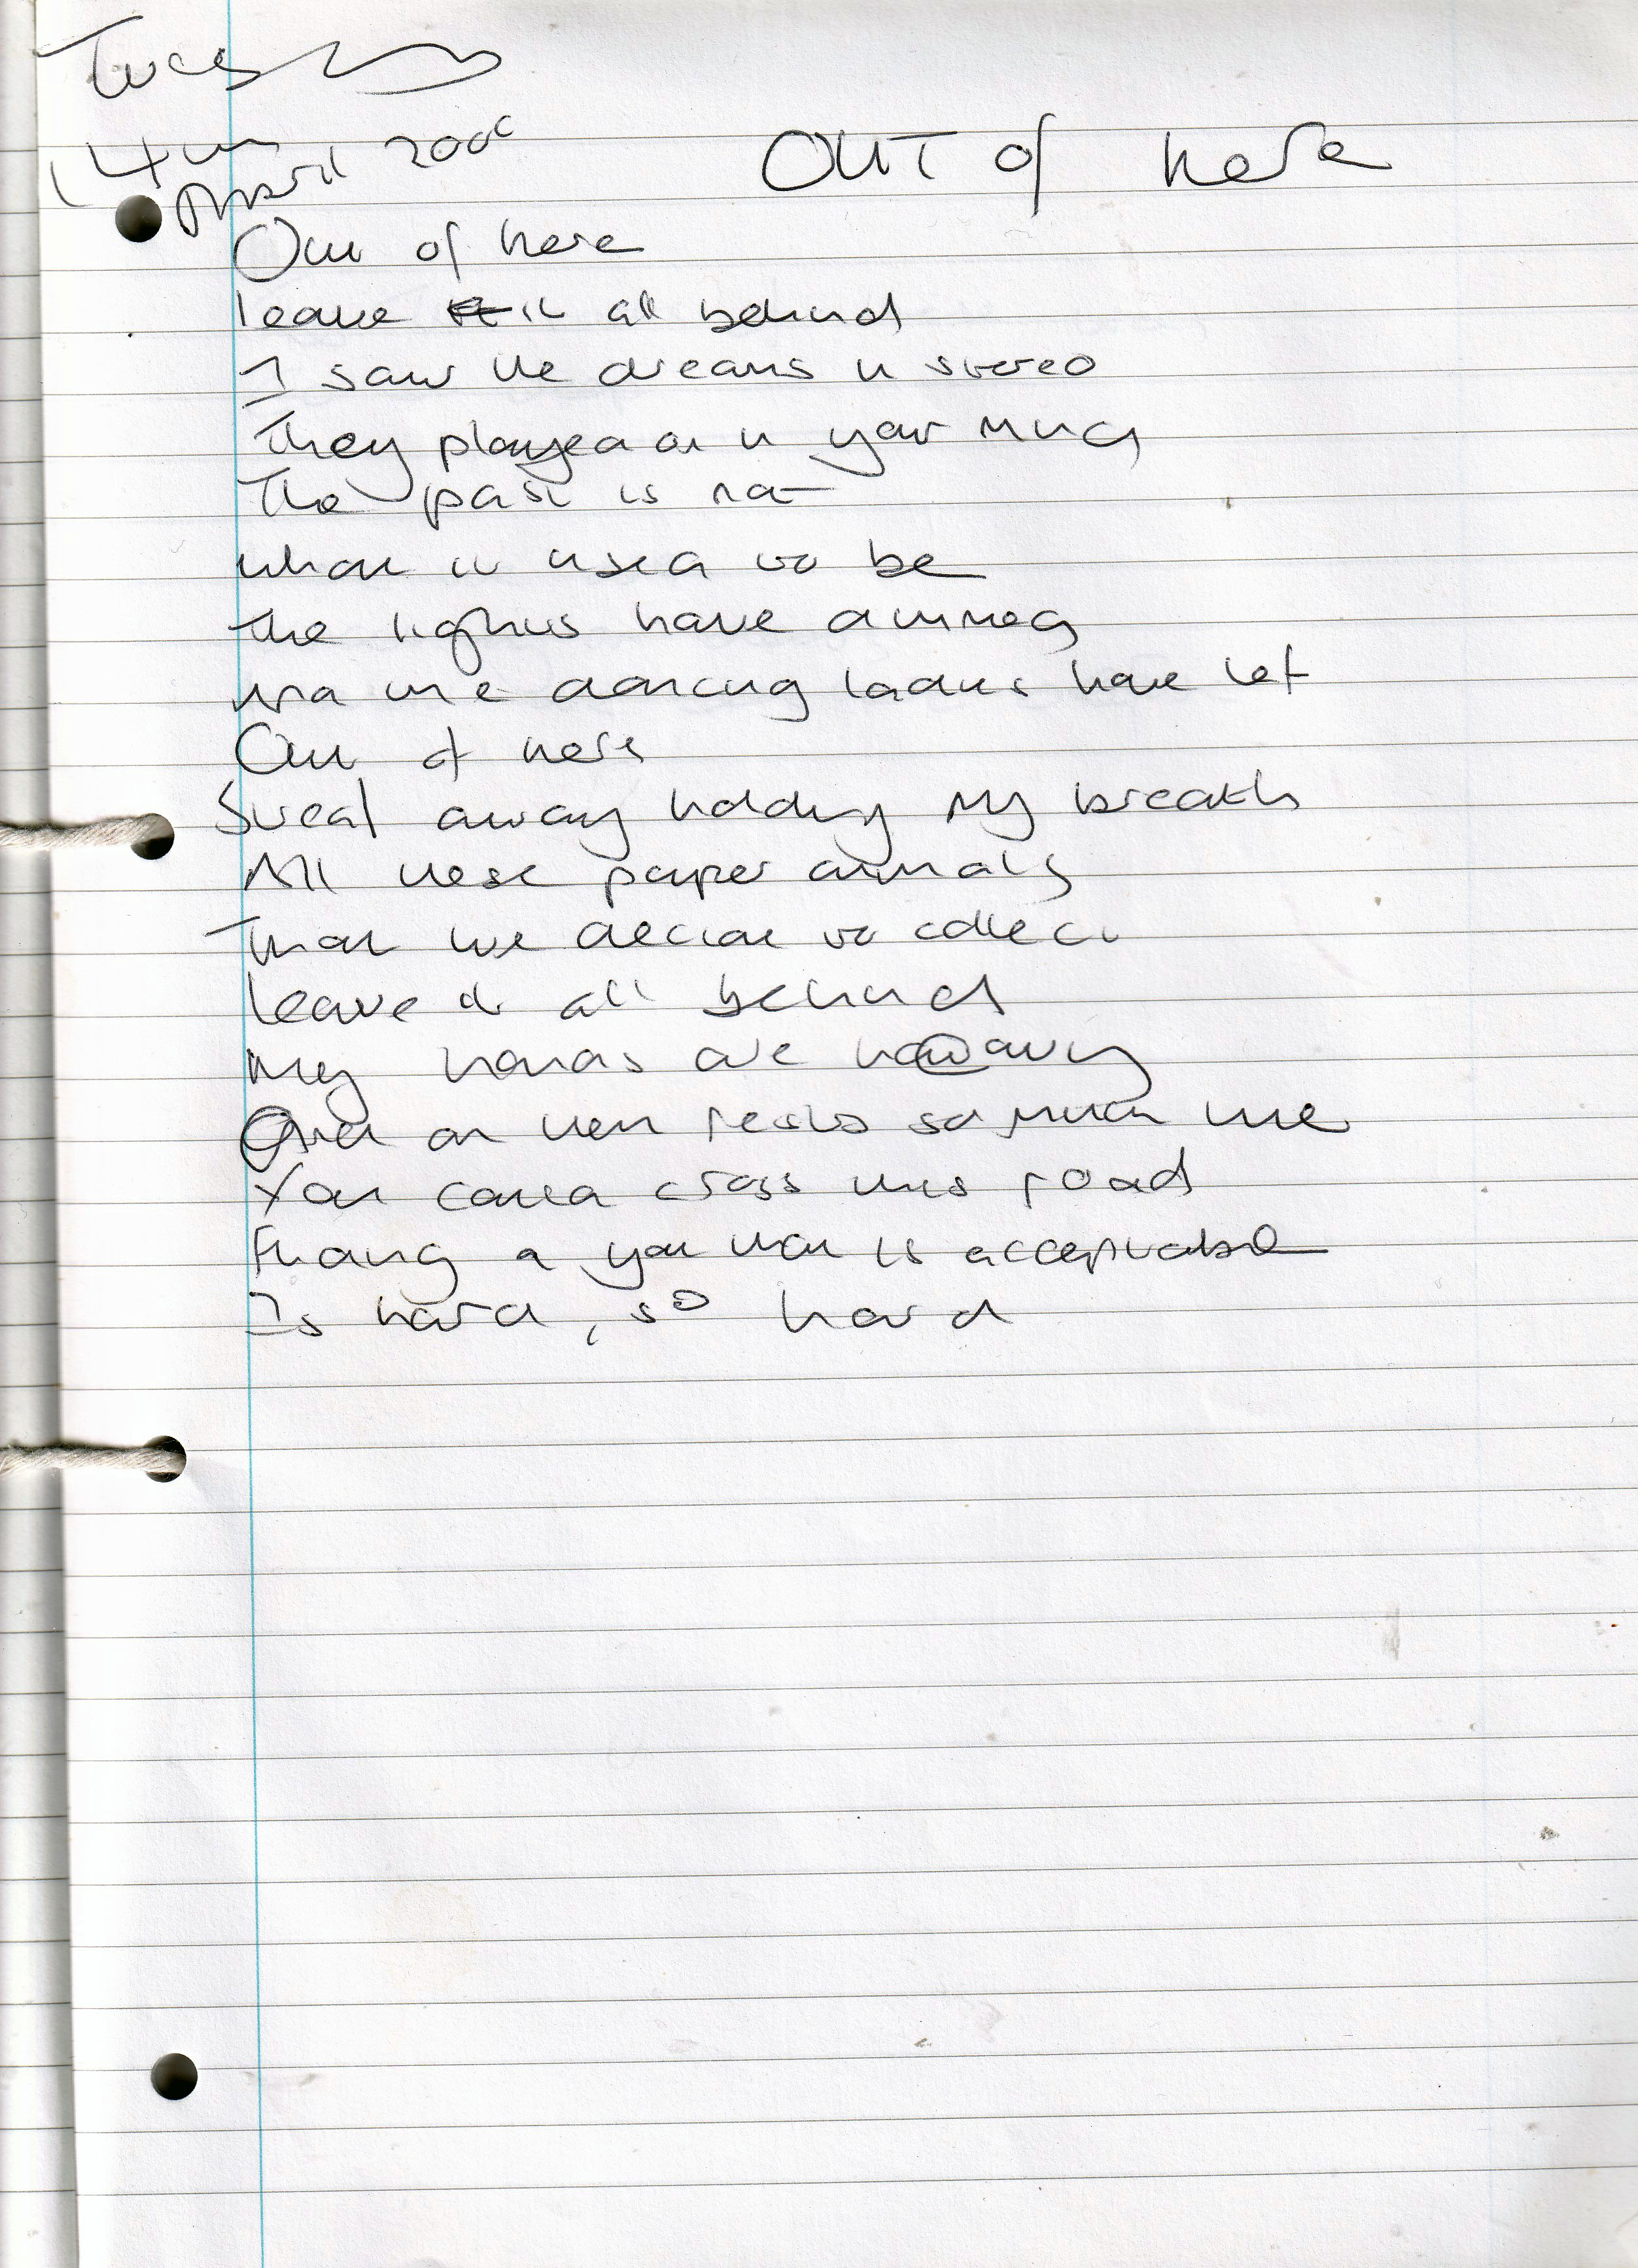 Tuesday
14th
April 2000
Out of here
Out of here
leave it all behind
I saw the dreams in stereo
They played on in your mind
The past is not
what it used to be
The lights have dimmed
and the dancing ladies have left
Out of here
Steal away holding my breath
All these paper animals
That we decide to collect
leave it all behind
My hands are
on then feels so much like
You could cross this road
Finding a you that is acceptable
Is hard, so hard